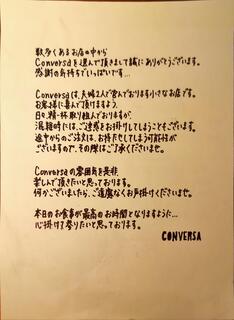 数多くあるお店の中から
Conversaを選んで頂きまして誠にありがとうございます。
感謝の気持ちでいっぱいです…
Conversaは、夫婦2人で営んでおります小さなお店です。
お客様に喜んで頂けますよう、
日々精一杯取り組んでおりますが、
混雑時には、ご迷惑をお掛けしてしまうこともございます。
途中からのご注文は、お待たせしてしまう可能性が
ございますので、その際はご了承くださいませ。
Conversaの雰囲気を是非、
楽しんで頂きたいと思っております。
何かございましたら、ご遠慮なくお声掛けくださいませ。
本日のお食事が最高のお時間となりますように…
心掛けて参りたいと思っております。
CONVERSA